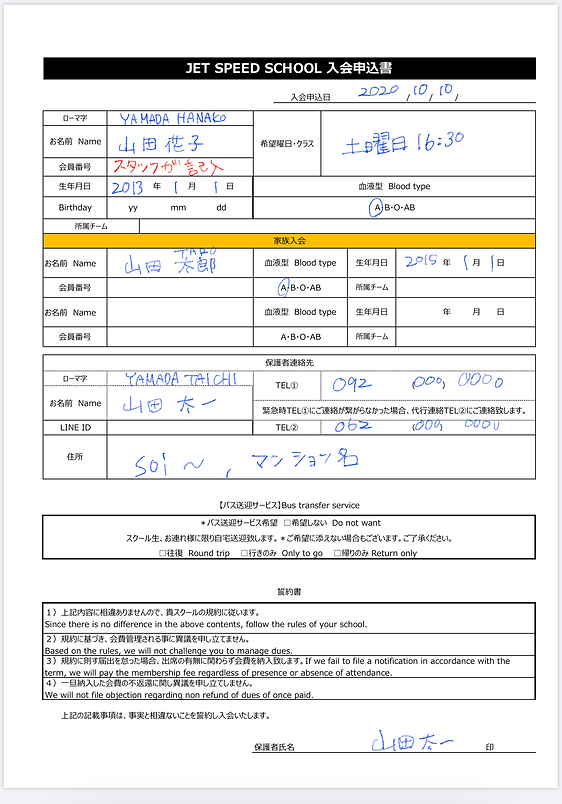 JET SPEED SCHOOL 入会申込書
入会申込日 2020 / 10 / 10 /
ローマ字 YAMADA HANAKO
お名前 Name 山田 花子
希望曜日・クラス 土曜日 16:30
会員番号 スタッフが記入
生年月日 2013 年 1 月 1 日 血液型 Blood type
Birthday yy mm dd A・B・O・AB
所属チーム
家族入会
お名前 Name 山田 太郎 TARO 血液型 Blood type 生年月日 2015 年 1 月 1 日
会員番号 A・B・O・AB 所属チーム
お名前 Name 血液型 Blood type 生年月日 年 月 日
会員番号 A・B・O・AB 所属チーム
保護者連絡先
ローマ字 YAMADA TAICHI TEL① 092 (000) 0000
お名前 Name 山田 太一
緊急時TEL①にご連絡が繋がらなかった場合、代行連絡TEL②にご連絡致します。
LINE ID TEL② 062 (000) 0000
住所 soi ~ , マンション名
【バス送迎サービス】Bus transfer service
＊バス送迎サービス希望 □希望しない Do not want
スクール生、お連れ様に限り自宅送迎致します。＊ご希望に添えない場合もございます。ご了承ください。
□往復 Round trip □行きのみ Only to go □帰りのみ Return only
誓約書
1）上記内容に相違ありませんので、貴スクールの規約に従います。
Since there is no difference in the above contents, follow the rules of your school.
2）規約に基づき、会費管理される事に異議を申し立てません。
Based on the rules, we will not challenge you to manage dues.
3）規約に則す届出を怠った場合、出席の有無に関わらず会費を納入致します。If we fail to file a notification in accordance with the
term, we will pay the membership fee regardless of presence or absence of attendance.
4）一旦納入した会費の不返還に関し異議を申し立てしません。
We will not file objection regarding non refund of dues of once paid.
上記の記載事項は、事実と相違ないことを誓約し入会いたします。
保護者氏名 山田 太一 印